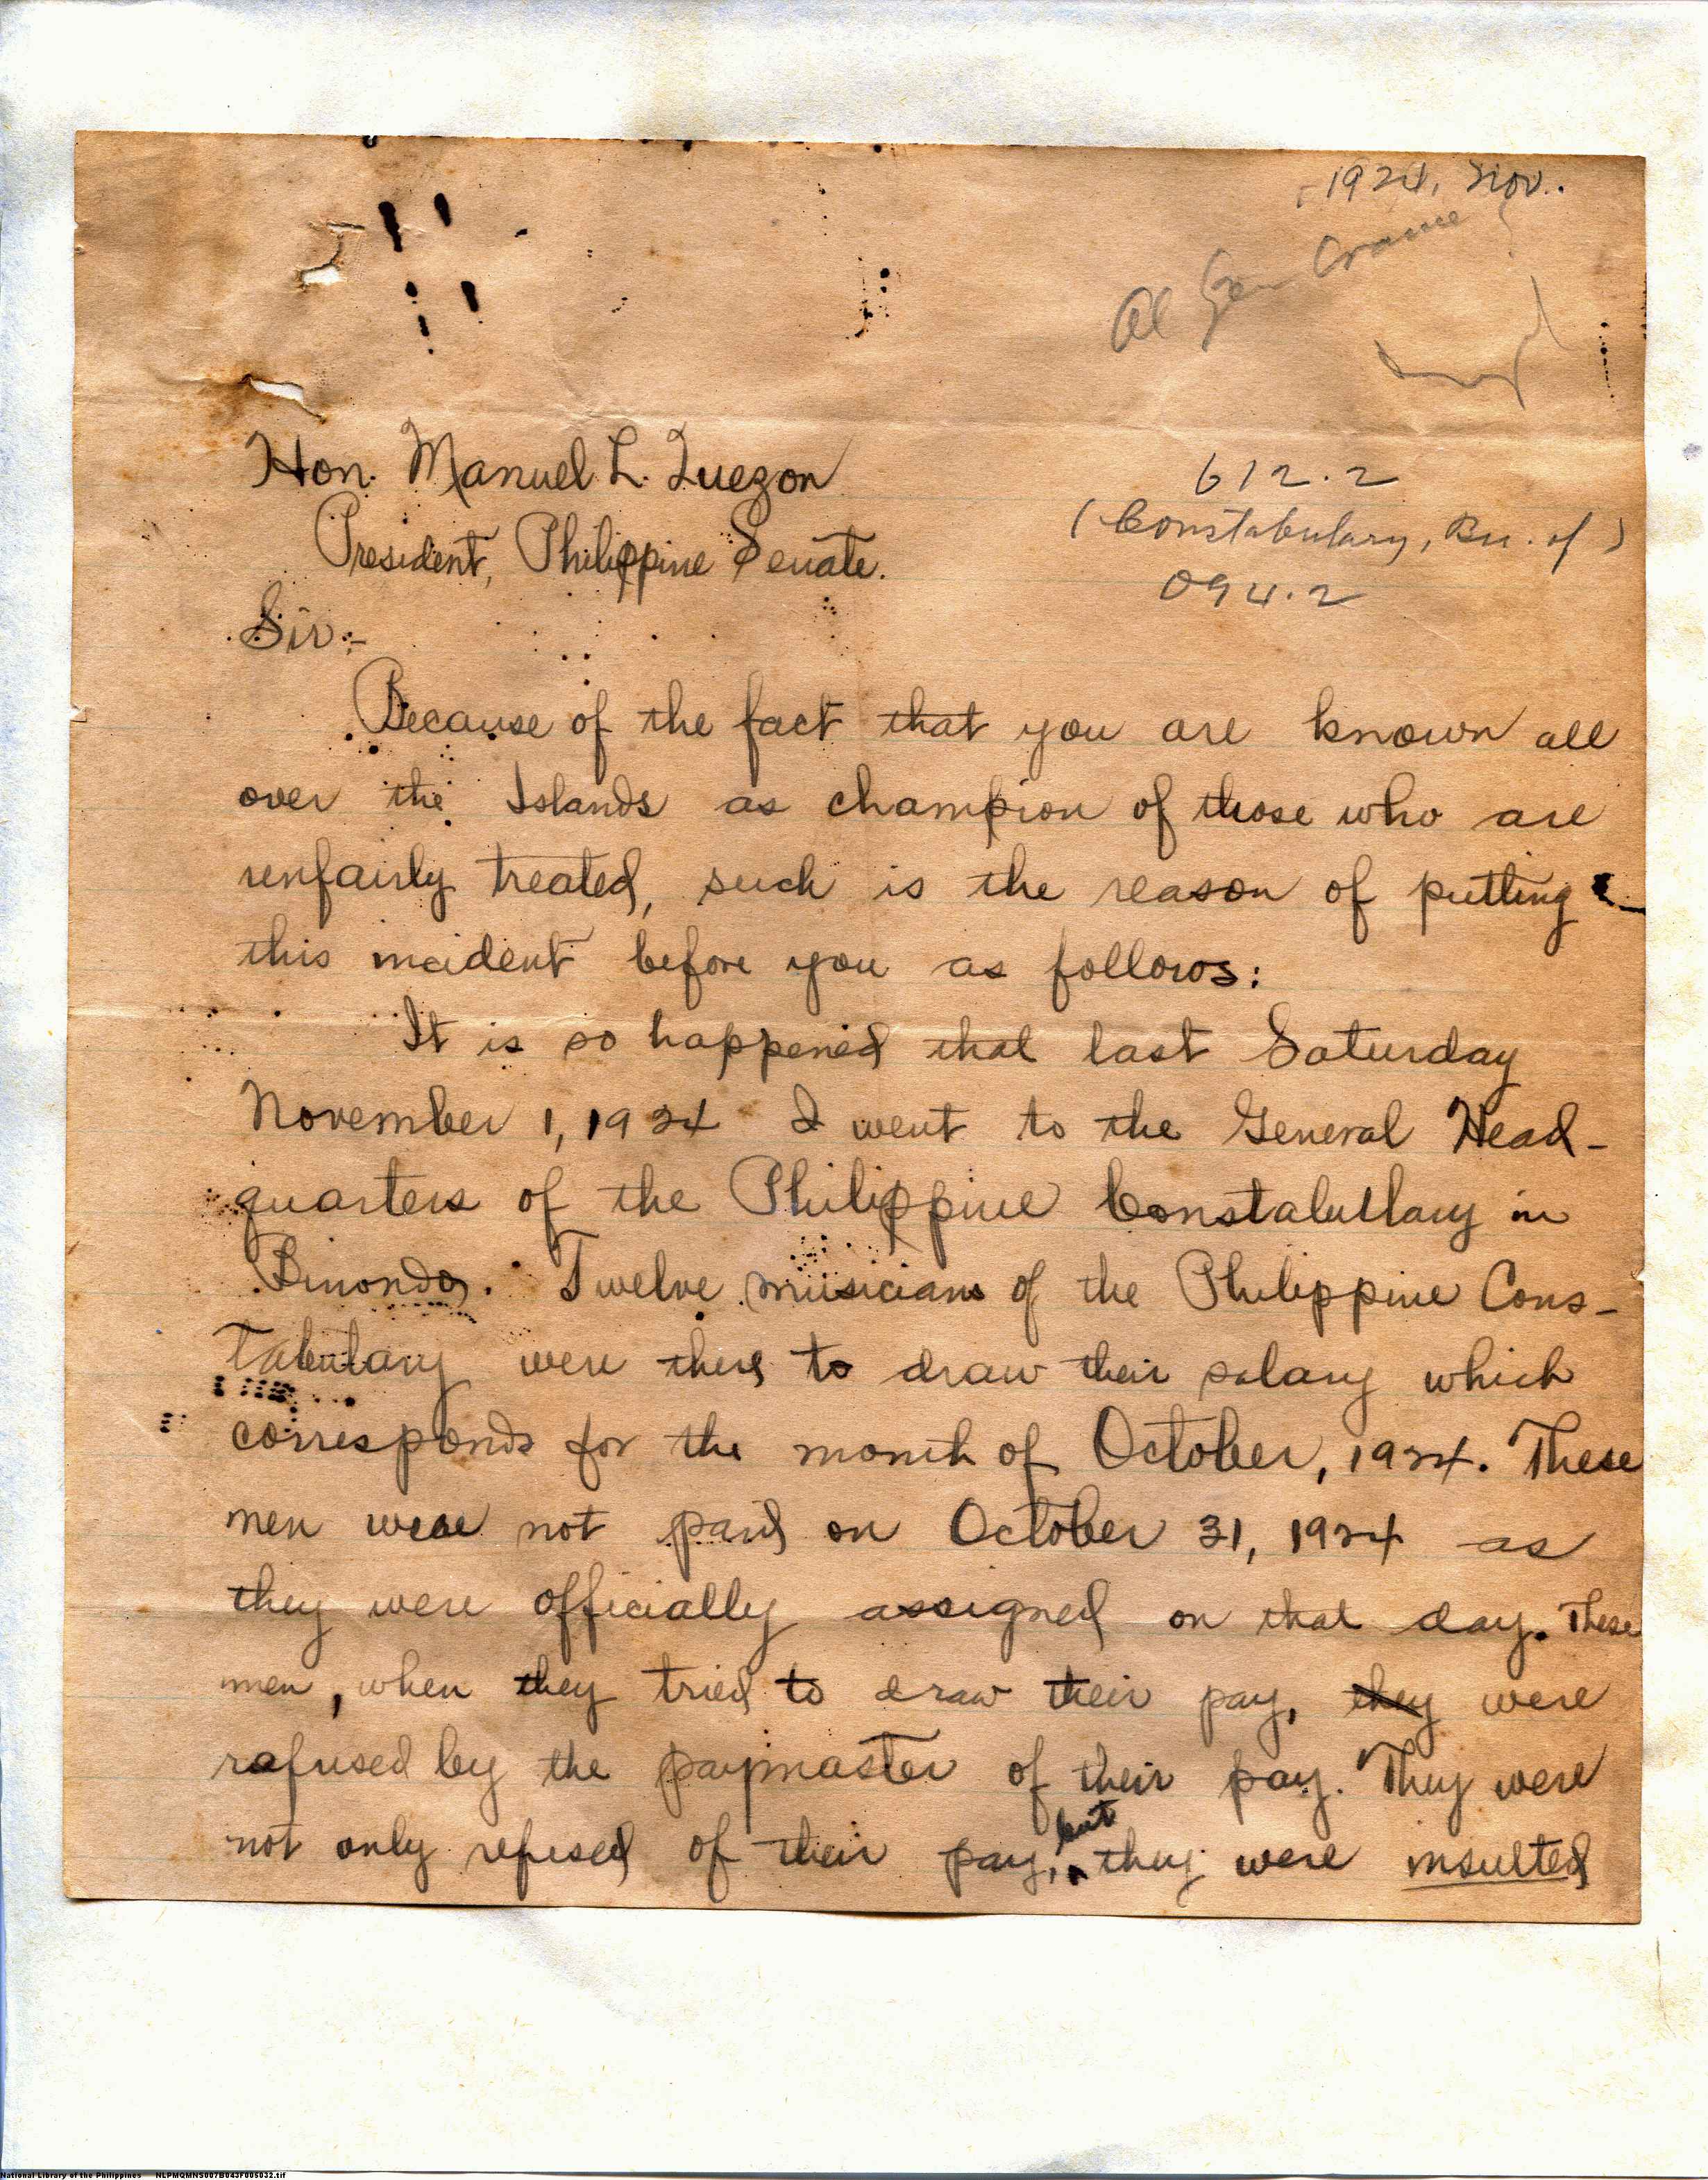 1924, Nov.
Al Gen Crame
Hon. Manuel L. Quezon
612.2
President, Philippine Senate.
(Constabulary, Bu. of)
094.2
Sir:-
Because of the fact that you are known all
over the Islands as champion of those who are
unfairly treated, such is the reason of putting
this incident before you as follows:
It is so happened that last Saturday
November 1, 1924 I went to the General Head-
quarters of the Philippine Constabullary in
Binondo. Twelve musicians of the Philippine Cons-
tabulary were there to draw their salary which
corresponds for the month of October, 1924. These
men were not paid on October 31, 1924 as
they were officially assigned on that day. These
men, when they tried to draw their pay, they were
rafused by the paymaster of their pay. They were
not only refused of their pay, but they were insulted
National Library of the Philippines NLPMQMNS007B043F005032.tif